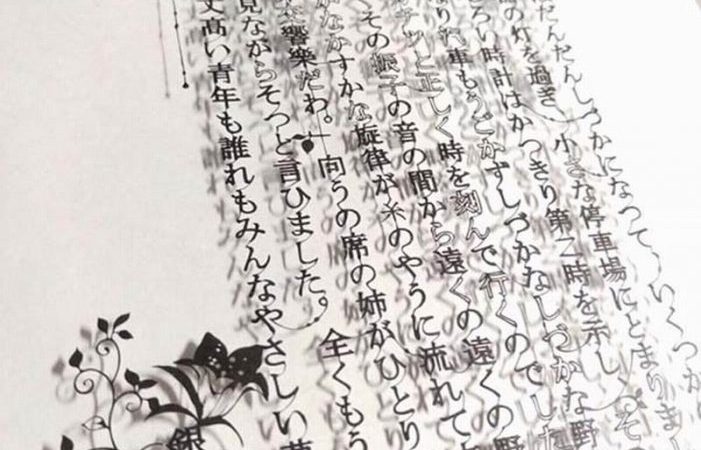 だんだんしづかになって、いくつか
の灯を過ぎ、小さな停車場にとまりまし
ろい時計はかつきり第二時を示しそ
汽車もうごかずしづかなしづかな野
カチッと正しく時を刻んで行くのでした
その振子の音の間から遠くの遠くの野
かなかすかな旋律が糸のやうに流れて
響樂だわ。」向うの席の姉が、ひとり
見ながらそっと言ひました。全くもう
丈高い青年も誰れもみんなやさしい夢
銀